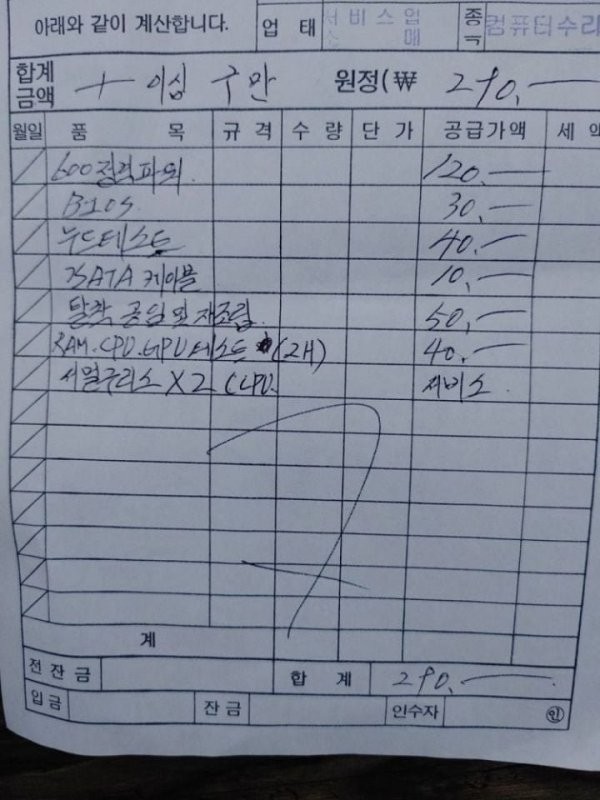 아래와 같이 계산합니다. 업 태 서비스업 매 종 컴퓨터수리
합계금액 十 이십 구만 원정(₩ 290.—
월일 품 목 규 격 수 량 단 가 공급가액 세 액
600정격파워 120.—
BIOS 30.—
누드테스트 40.—
SATA 케이블 10.—
탈착 공임 및 재조립. 50.—
RAM.CPU.GPU테스트 (2H) 40.—
써멀구리스 X2 (CPU. 서비스.
계
전잔금 합 계 290.—
입금 잔금 인수자 ㊞